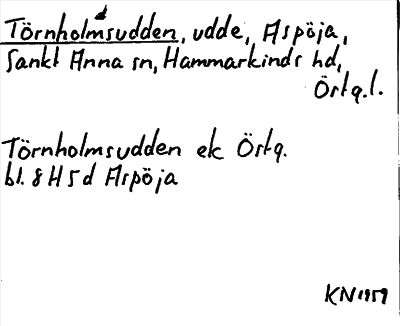 Törnholmsudden, udde, Aspöja,
Sankt Anna sn, Hammarkinds hd,
Östg.l.
Törnholmsudden ek Östg.
bl. 8 H 5 d Aspöja
KN 1959